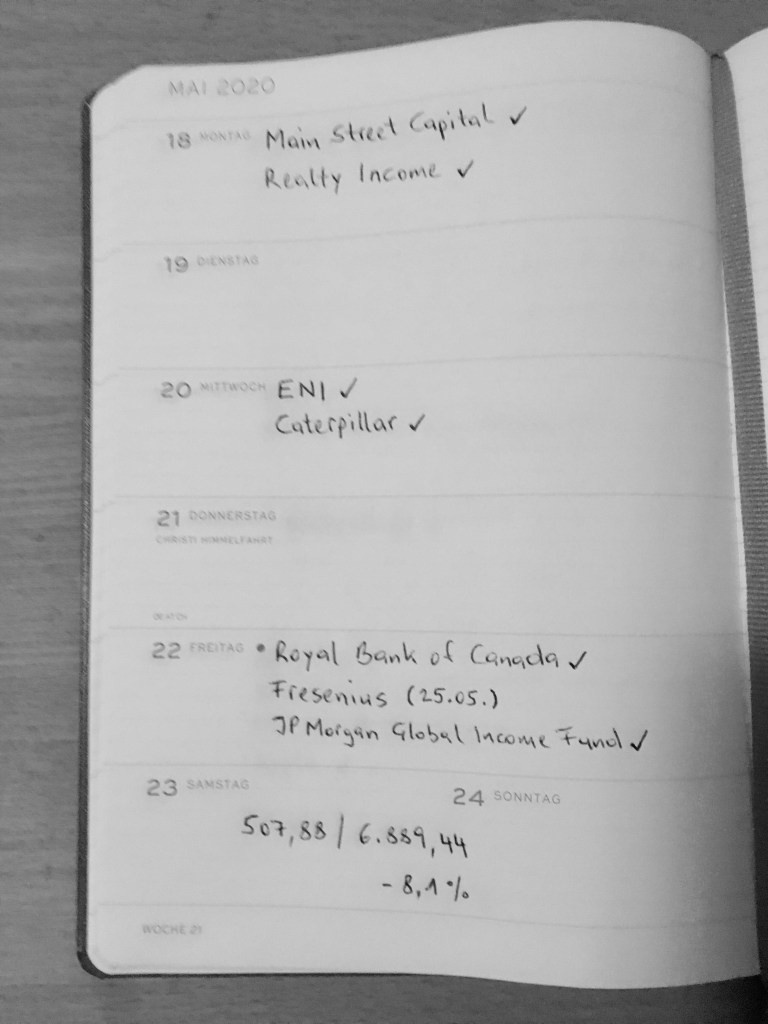 MAI 2020
18 MONTAG Main Street Capital ✓
Realty Income ✓
19 DIENSTAG
20 MITTWOCH ENI ✓
Caterpillar ✓
21 DONNERSTAG
CHRISTI HIMMELFAHRT
22 FREITAG • Royal Bank of Canada ✓
Fresenius (25.05.)
JP Morgan Global Income Fund ✓
23 SAMSTAG
24 SONNTAG
507,88 / 6.889,44
- 8,1 %
WOCHE 21